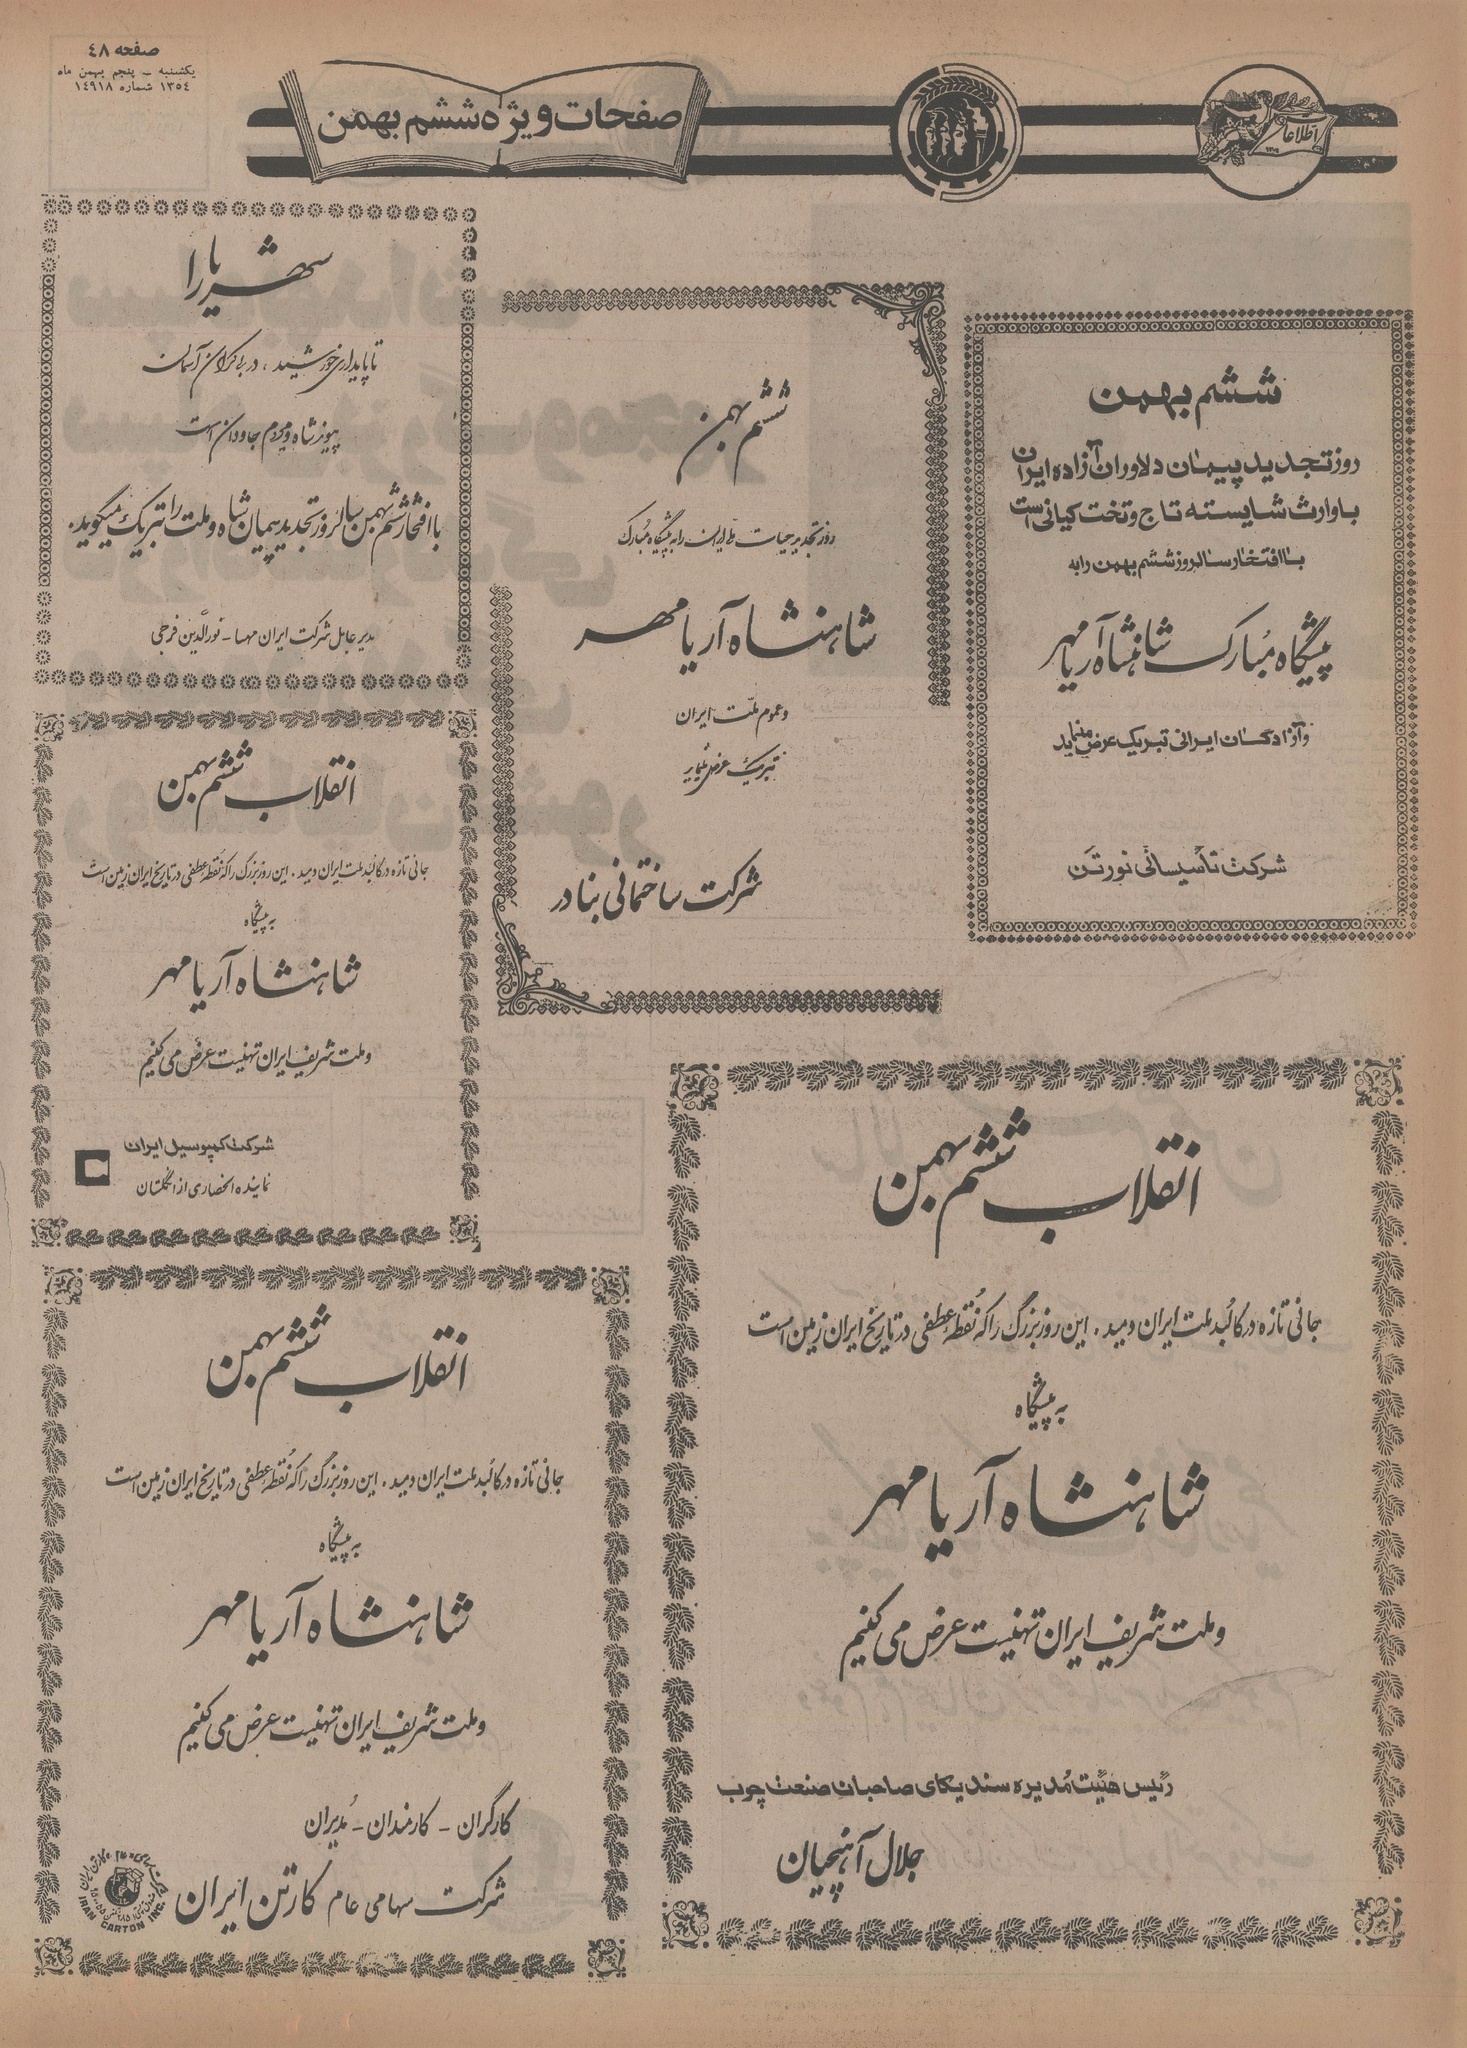 صفحه ٤٨
یکشنبه – پنجم بهمن ماه
١٣٥٤ شماره ١٤٩١٨
صفحات ویژه ششم بهمن
اطلاعات
ششم بهمن
روز تجدید پیمان دلاوران آزاده ایران
با وارث شایسته تاج و تخت کیانی است
با افتخار سالروز ششم بهمن را به
پیشگاه مبارک شاهنشاه آریامهر
و آزادگان ایرانی تبریک عرض مینماید
شرکت تأسیساتی نورتن
ششم بهمن
روز تجدید حیات ملی ایران را به پیشگاه مبارک
شاهنشاه آریامهر
و عموم ملت ایران
تبریک عرض مینماید
شرکت ساختمانی بنادر
شهریارا
تا پایداری خورشید، در بیکران آسمان
پیوند شاه و مردم جاودان است
با افتخار ششم بهمن سالروز تجدید پیمان شاه و ملت را تبریک میگوید.
مدیر عامل شرکت ایران مهسا - نورالدین فرجی
انقلاب ششم بهمن
جانی تازه در کالبد ملت ایران دمید. این روز بزرگ را که نقطه عطفی در تاریخ ایران زمین است
به پیشگاه
شاهنشاه آریامهر
و ملت شریف ایران تهنیت عرض می کنیم
شرکت کمپوسیل ایران
نماینده انحصاری از انگلستان
انقلاب ششم بهمن
جانی تازه در کالبد ملت ایران دمید. این روز بزرگ را که نقطه عطفی در تاریخ ایران زمین است
به پیشگاه
شاهنشاه آریامهر
و ملت شریف ایران تهنیت عرض می کنیم
رئیس هیئت مدیره سندیکای صاحبان صنعت چوب
جلال آهنچیان
انقلاب ششم بهمن
جانی تازه در کالبد ملت ایران دمید. این روز بزرگ را که نقطه عطفی در تاریخ ایران زمین است
به پیشگاه
شاهنشاه آریامهر
و ملت شریف ایران تهنیت عرض می کنیم
کارگران - کارمندان - مدیران
شرکت سهامی عام کارتن ایران
IRAN CARTON INC.